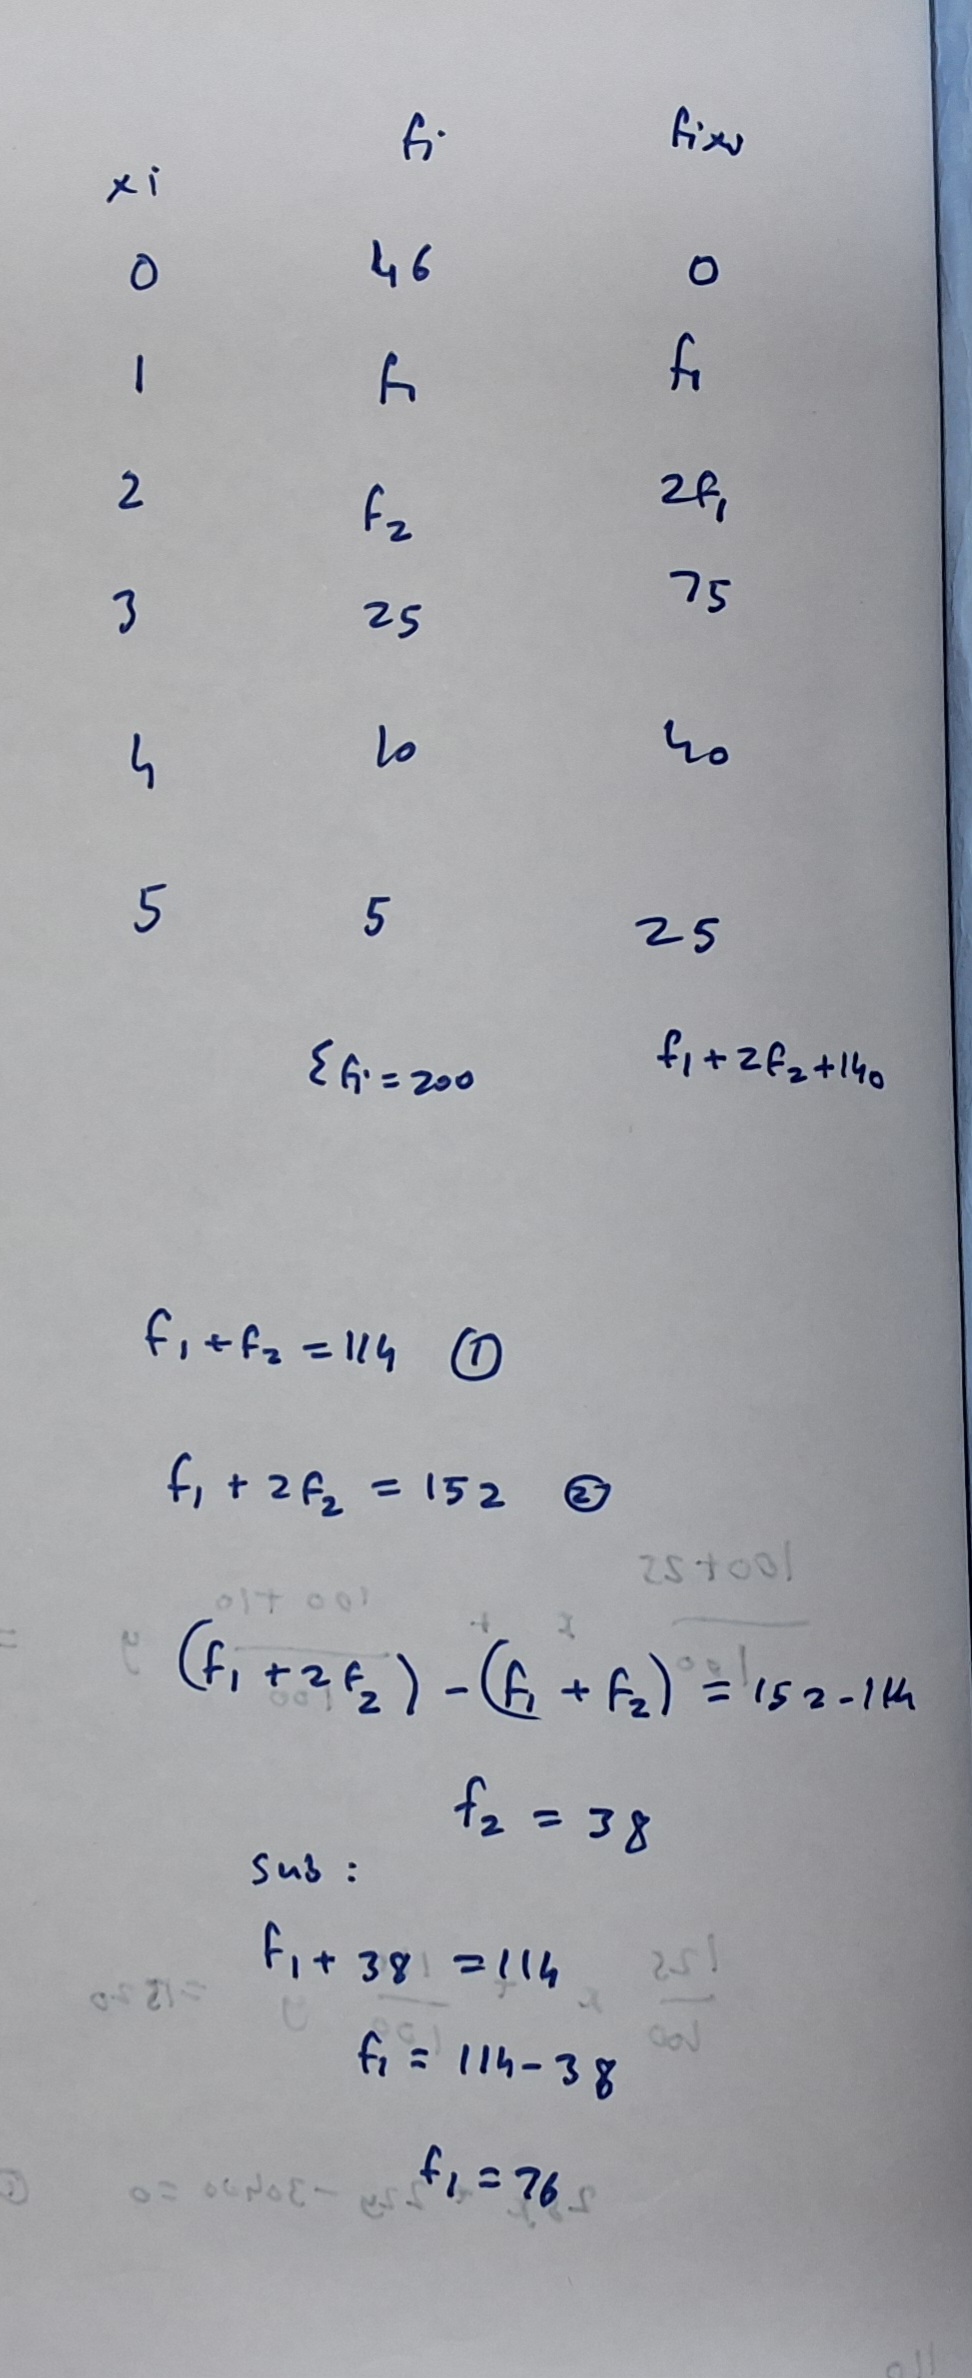 xi fi fixi
0 46 0
1 f1 f1
2 f2 2f1
3 25 75
4 10 40
5 5 25
Σfi = 200 f1 + 2f2 + 140
f1 + f2 = 114 ①
f1 + 2f2 = 152 ②
(f1 + 2f2) - (f1 + f2) = 152 - 114
f2 = 38
sub :
f1 + 38 = 114
f1 = 114 - 38
f1 = 76